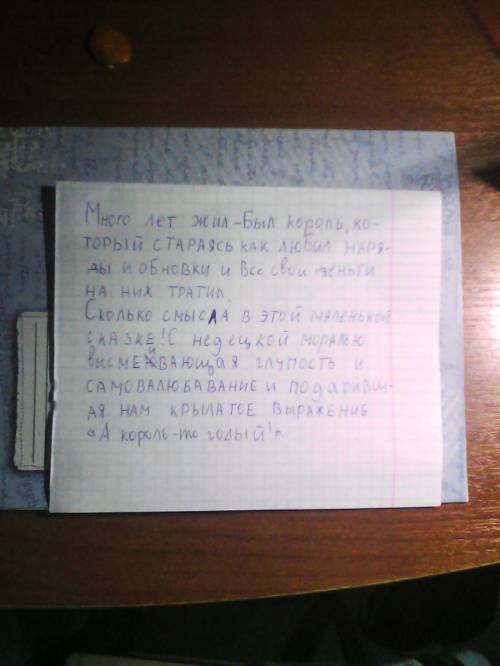 Много лет жил-был король, ко-
торый стараясь как любил наря-
ды и обновки и все свои деньги
на них тратил.
Сколько смысла в этой маленькой
сказке! С недецкой моралью
высмеивающая глупость и
самовалюбавание и подаривш-
ая нам крылатое выражение
«А король-то голый!»